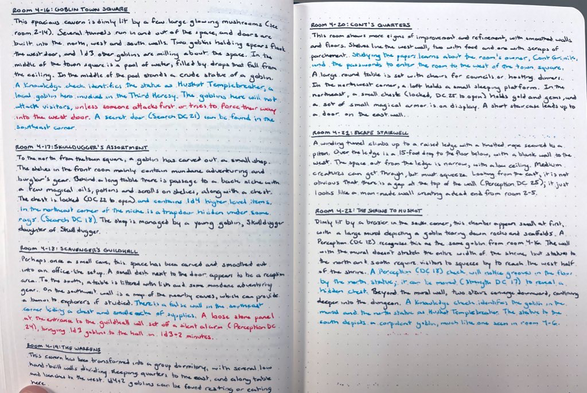 ROOM 4-16: GOBLIN TOWN SQUARE
This spacious cavern is dimly lit by a few large glowing mushrooms (see
room 2-14). Several tunnels run in and out of the space, and doors are
built into the north, west and south walls. Two goblins holding spears flank
the west door, and 1d3 other goblins are milling about the space. In the
middle of the town square is a pool of water, filled by drops that fall from
the ceiling. In the middle of the pool stands a crude statue of a goblin.
A knowledge check identifies the statue as Hushot Templebreaker, a
local goblin hero involved in the Third Heresy. The goblins here will not
attack visitors, unless someone attacks first or tries to force their way
into the west door. A secret door (Search DC 21) can be found in the
southeast corner.
ROOM 4-17: SKULLDUGGER'S ASSORTMENT
To the east from the town square, a goblin has carved out a small shop.
The shelves in the front room mainly contain mundane adventuring and
burglar's gear. Behind a long table there is passage to a back niche with
a few magical oils, potions and scrolls on shelves, along with a chest.
The chest is locked (DC 22 to open) and contains 1d4 higher level items.
In the northeast corner of the niche, is a trapdoor hidden under some
rags (Search DC 18). The shop is managed by a young goblin, Skulldigger
daughter of Skulldugger.
ROOM 4-18: SCAVENGER'S GUILDHALL
Perhaps once a small cave, this space has been carved and smoothed out
into an office-like setup. A small desk next to the door appears to be a reception
area. To the south, a table is littered with lists and some mundane adventuring
gear. On the southwest wall is a map of the nearby caves, which can provide
a boon to explorers if studied. There is a false wall in the southeast
corner hiding a chest and small cache of supplies. A loose stone panel
at the entrance to the guildhall will set of a silent alarm (Perception DC
24), bringing 1d3 goblins to the hall in 1d3+2 minutes.
ROOM 4-19: THE WARRENS
This cavern has been transformed into a group dormitory, with several low
hand-built walls dividing sleeping quarters to the east, and a long table
and benches to the west. 1d4+2 goblins can be found resting or eating
here.
ROOM 4-20: CONT'S QUARTERS
This room shows more signs of improvement and refinement, with smoothed walls
and floors. Shelves line the west wall, two with food and one with scraps of
parchment. Studying the papers learns about the room's owner, Cont Grilnik,
and the passwords to enter the room to the west of the town square.
A large round table is set with chairs for councils or hosting dinners.
In the southwest corner, a loft holds a small sleeping platform. In the
northeast, a small chest (locked, DC 25 to open) holds gold and gems, and
a set of small magical armor is on display. A short staircase leads up to
a door on the east wall.
ROOM 4-21: ESCAPE STAIRWELL
A winding tunnel climbs up to a raised ledge with a knotted rope secured to a
piton. Over the ledge is a 15-foot drop to the floor below, with a blank wall to the
west. The space out from the ledge is narrow, with a low ceiling. Medium
creatures can get through, but must squeeze. Looking from the east, it is not
obvious that there is a gap at the top of the wall (Perception DC 25); it just
looks like a man-made wall creating a dead end from room 2-5.
ROOM 4-22: THE SHRINE TO HUSHOT
Dimly lit by a brazier in the south corner, this chamber appears small at first,
with a large mural depicting a goblin tearing down rocks and scaffolds. A
Perception (DC 12) recognizes this as the same goblin from room 4-16. The wall
with the mural doesn't stretch the entire width of the shrine, but statues to
the north and south require visitors to squeeze by to reach the west half
of the shrine. A Perception (DC 18) check will notice grooves in the floor
by the north statue; it can be moved (Strength DC 17) to reveal a
hidden chest. Beyond the mural wall, two stairs converge downward, continuing
deeper into the dungeon. A knowledge check identifies the goblin in the
mural and the north statue as Hushot Templebreaker. The statue to the
south depicts a corpulent goblin, much like one seen in room 4-6.